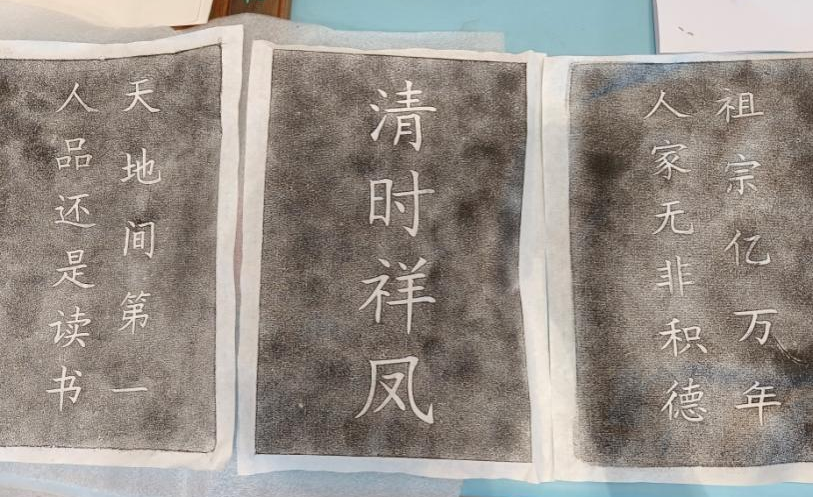 祖宗亿万年
人家无非积德
清时祥凤
天地间第一
人品还是读书